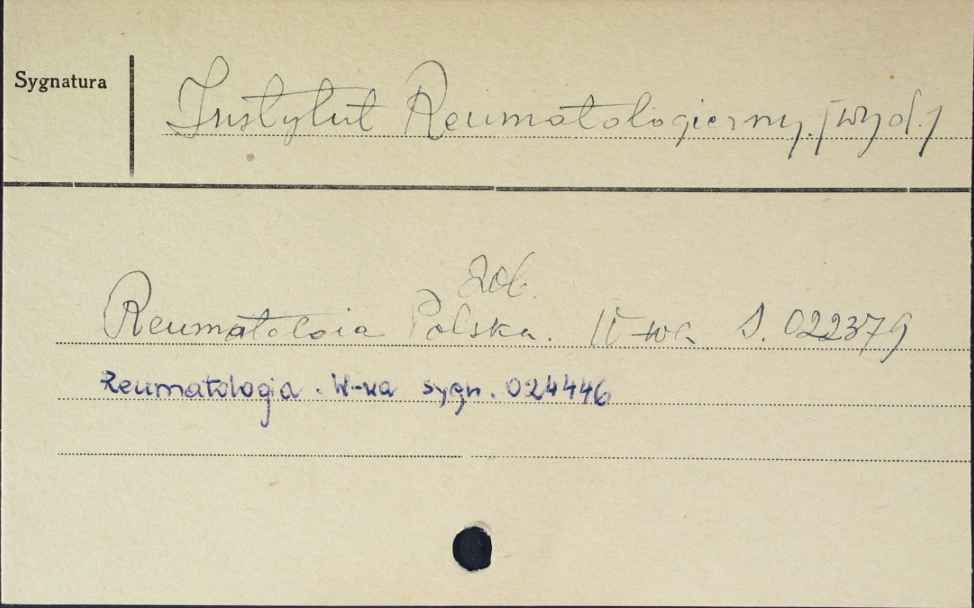 Sygnatura
Instytut Reumatologiczny. [wyd.]
Zob.
Reumatologia Polska. W-wa S. 022379
Reumatologia. W-wa sygn. 024446